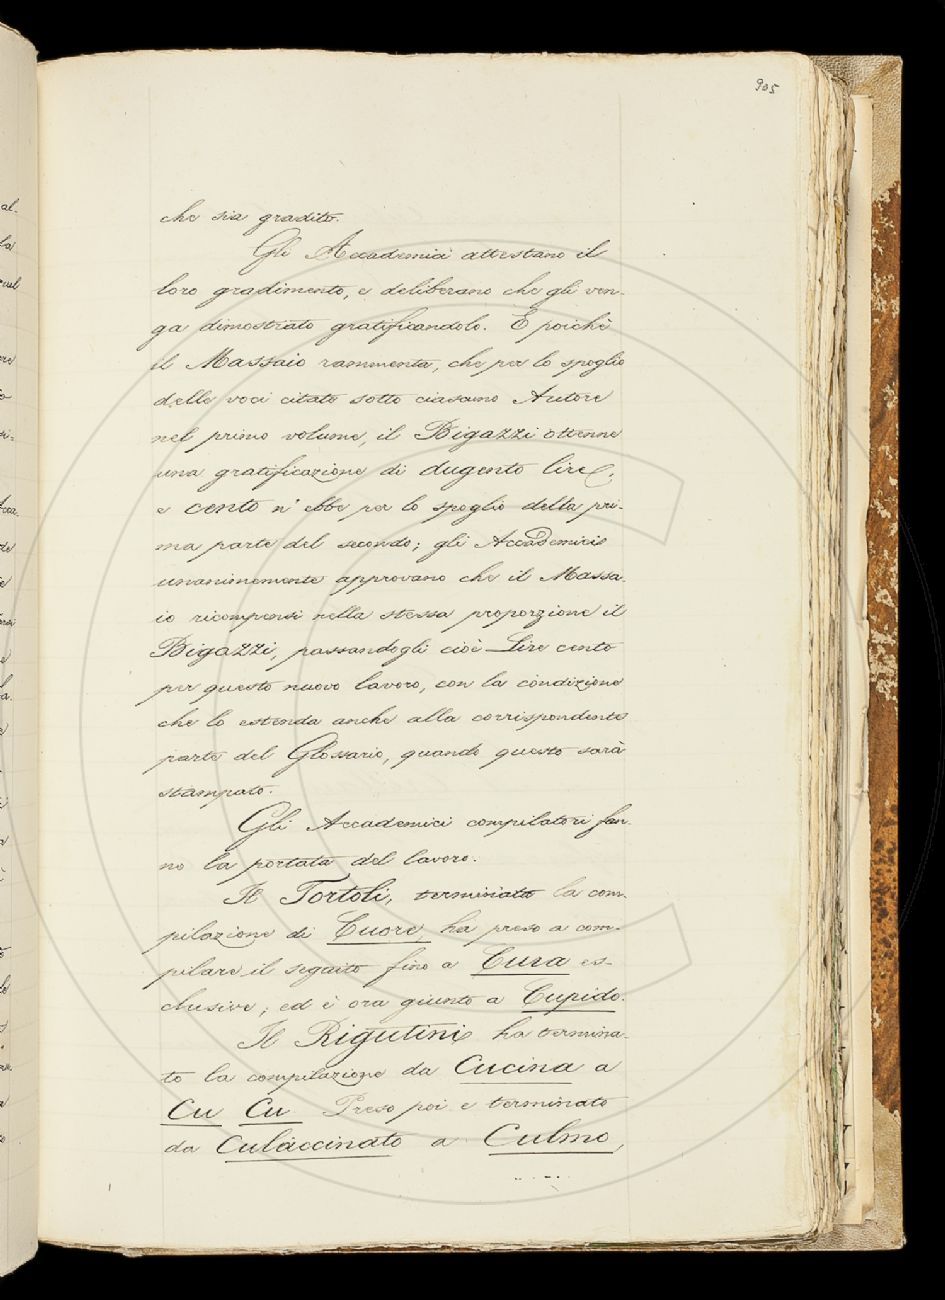 905
che sia gradito.
Gli Accademici attestano il
loro gradimento, e deliberano che gli ven-
ga dimostrato gratificandolo. E poichè
il Massaio rammenta, che per lo spoglio
delle voci citate sotto ciascuno Autore
nel primo volume, il Bigazzi ottenne
una gratificazione di dugento lire,
e cento n'ebbe per lo spoglio della pri-
ma parte del secondo; gli Accademici
unanimemente approvano che il Massa-
io ricompensi nella stessa proporzione il
Bigazzi, passandogli cioè Lire cento
per questo nuovo lavoro, con la condizione
che lo estenda anche alla corrispondente
parte del Glossario, quando questo sarà
stampato.
Gli Accademici compilatori fan-
no la portata del lavoro.
Il Tortoli, terminata la com-
pilazione di Cuore, ha preso a com-
pilare il seguito fino a Cura es-
clusive; ed è ora giunto a Cupido.
Il Rigutini ha termina-
to la compilazione da Cucina a
Cu Cu. Preso poi e terminato
da Culaccinato a Culmo,